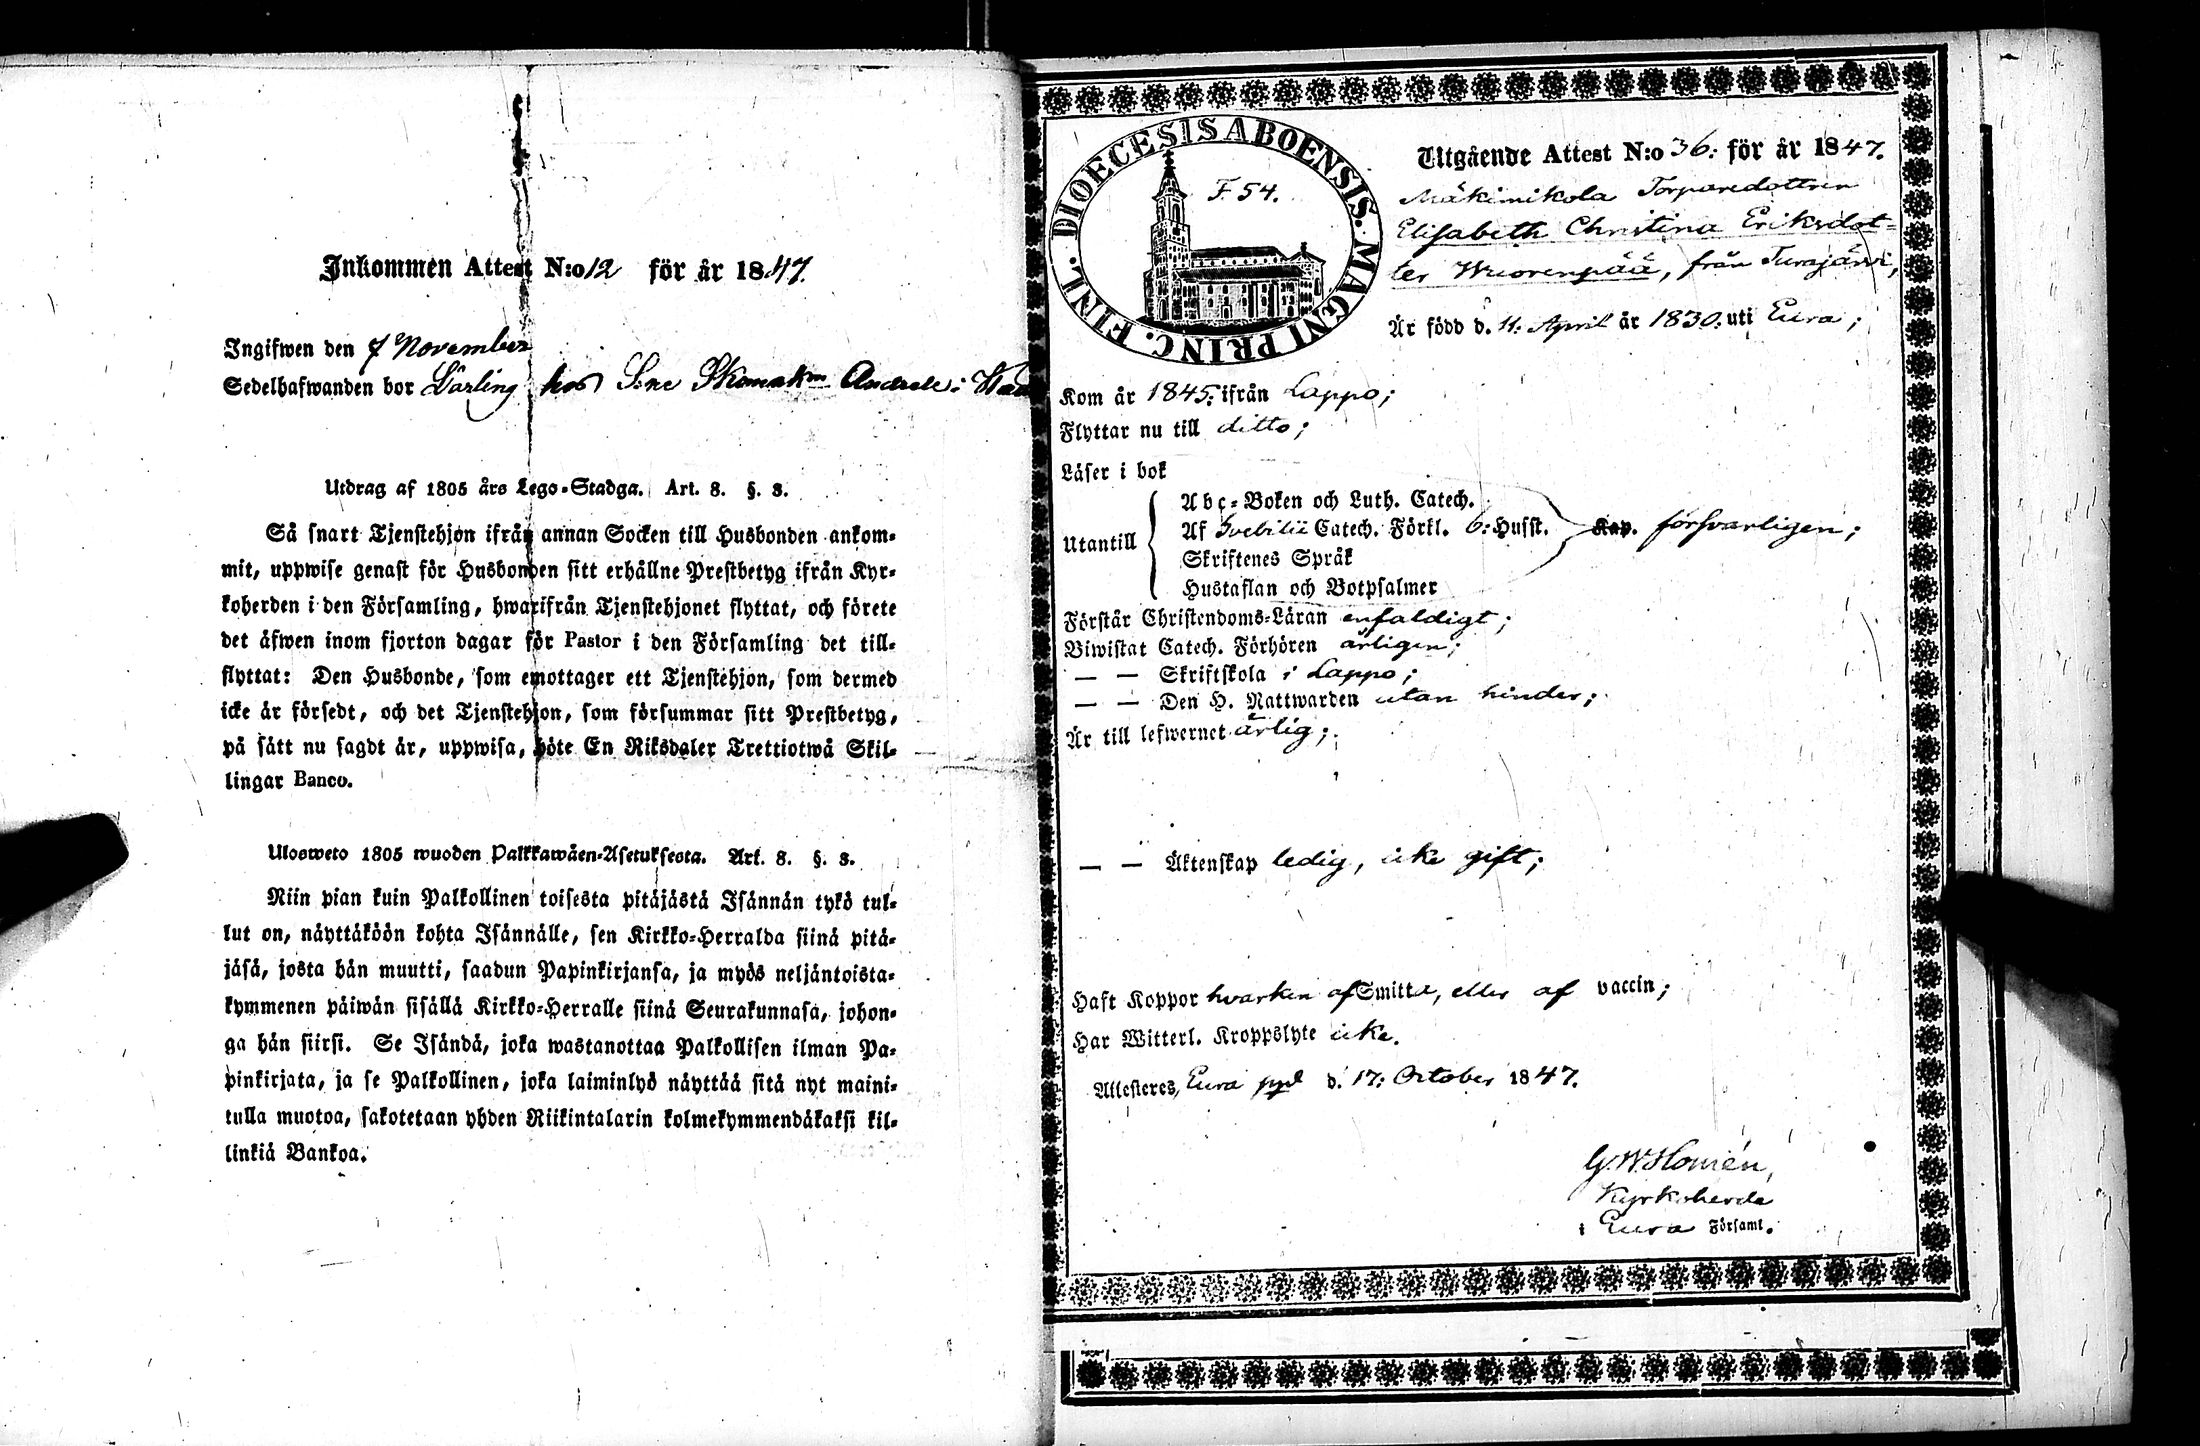 Inkommen Attest N:o 12 för år 1847.
Ingifwen den 7 November
Sedelhafwanden bor Lärling hos Sone Skomak:n Andrele i
Utdrag af 1805 års Lego-Stadga. Art. 8. §. 3.
Så snart Tjenstehjon ifrån annan Socken till Husbonden ankom-
mit, uppwise genast för Husbonden sitt erhållne Prestbetyg ifrån Kyr-
koherden i den Församling, hwarifrån Tjenstehjonet flyttat, och förete
det äfwen inom fjorton dagar för Pastor i den Församling det till-
flyttat: Den Husbonde, som emottager ett Tjenstehjon, som dermed
icke är försedt, och det Tjenstehjon, som försummar sitt Prestbetyg,
på sätt nu sagdt är, uppwisa, böte En Riksdaler Trettiotwå Skil-
lingar Banco.
Ulosweto 1805 wuoden Palkkawäen-Asetuksesta. Art. 8. §. 3.
Niin pian kuin Palkollinen toisesta pitäjästä Isännän tykö tul-
lut on, näyttäköön kohta Isännälle, sen Kirkko-Herralda siinä pitä-
jäsä, josta hän muutti, saadun Papinkirjansa, ja myös neljäntoista-
kymmenen päiwän sisällä Kirkko-Herralle siinä Seurakunnasa, johon-
ga hän siirsi. Se Isändä, joka wastanottaa Palkollisen ilman Pa-
pinkirjata, ja se Palkollinen, joka laiminlyö näyttää sitä nyt maini-
tulla muotoa, sakotetaan yhden Riikintalarin kolmekymmendäkaksi kil-
linkiä Bankoa.
DIOECESIS ABOENSIS. MAGNI PRINC. FINL.
F. 54.
Utgående Attest N:o 36: för år 1847.
Mäkimikola Torparedottren
Elisabeth Christina Eriksdot-
ter Wuorenpää, från Turajärvi,
Är född d. 11: April år 1830: uti Eura;
Kom år 1845: ifrån Lappo;
Flyttar nu till ditto;
Läser i bok
Utantill
Abc-Boken och Luth. Catech.
Af Svebilii Catech. Förkl. 6: Husst.
Skriftenes Språk
Hustaflan och Botpsalmer
Kap. försvarligen;
Förstår Christendoms-Läran enfaldigt;
Biwistat Catech. Förhören årligen;
— — Skriftskola i Lappo;
— — Den H. Nattwarden utan hinder;
Är till lefwernet ärlig;
— — Äktenskap ledig, icke gift;
Haft Koppor hvarken af Smitta, eller af vaccin;
Har Witterl. Kroppslyte icke.
Attesteres, Eura ppl d. 17: October 1847.
G. W. Homén,
Kyrkoherde
i Eura Församl.